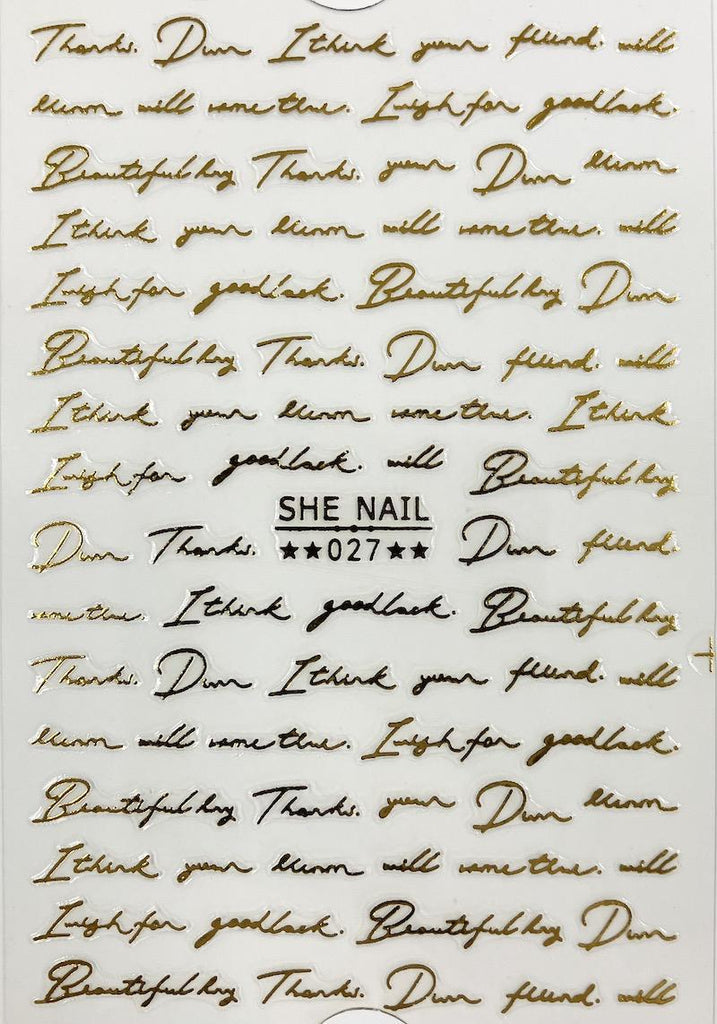 Thanks. Dum I think your friend. will
will come true. I wish for good luck.
Beautiful day Thanks. your Dum
I think your will come true. will
I wish for good luck. Beautiful day Dum
Beautiful day Thanks. Dum friend. will
I think your come true. I think
I wish for good luck. will Beautiful day
SHE NAIL
Dum Thanks. ★★027★★ Dum friend.
come true. I think good luck. Beautiful day
Thanks. Dum I think your friend. will
will come true. I wish for good luck.
Beautiful day Thanks. your Dum
I think your will come true. will
I wish for good luck. Beautiful day Dum
Beautiful day Thanks. Dum friend. will